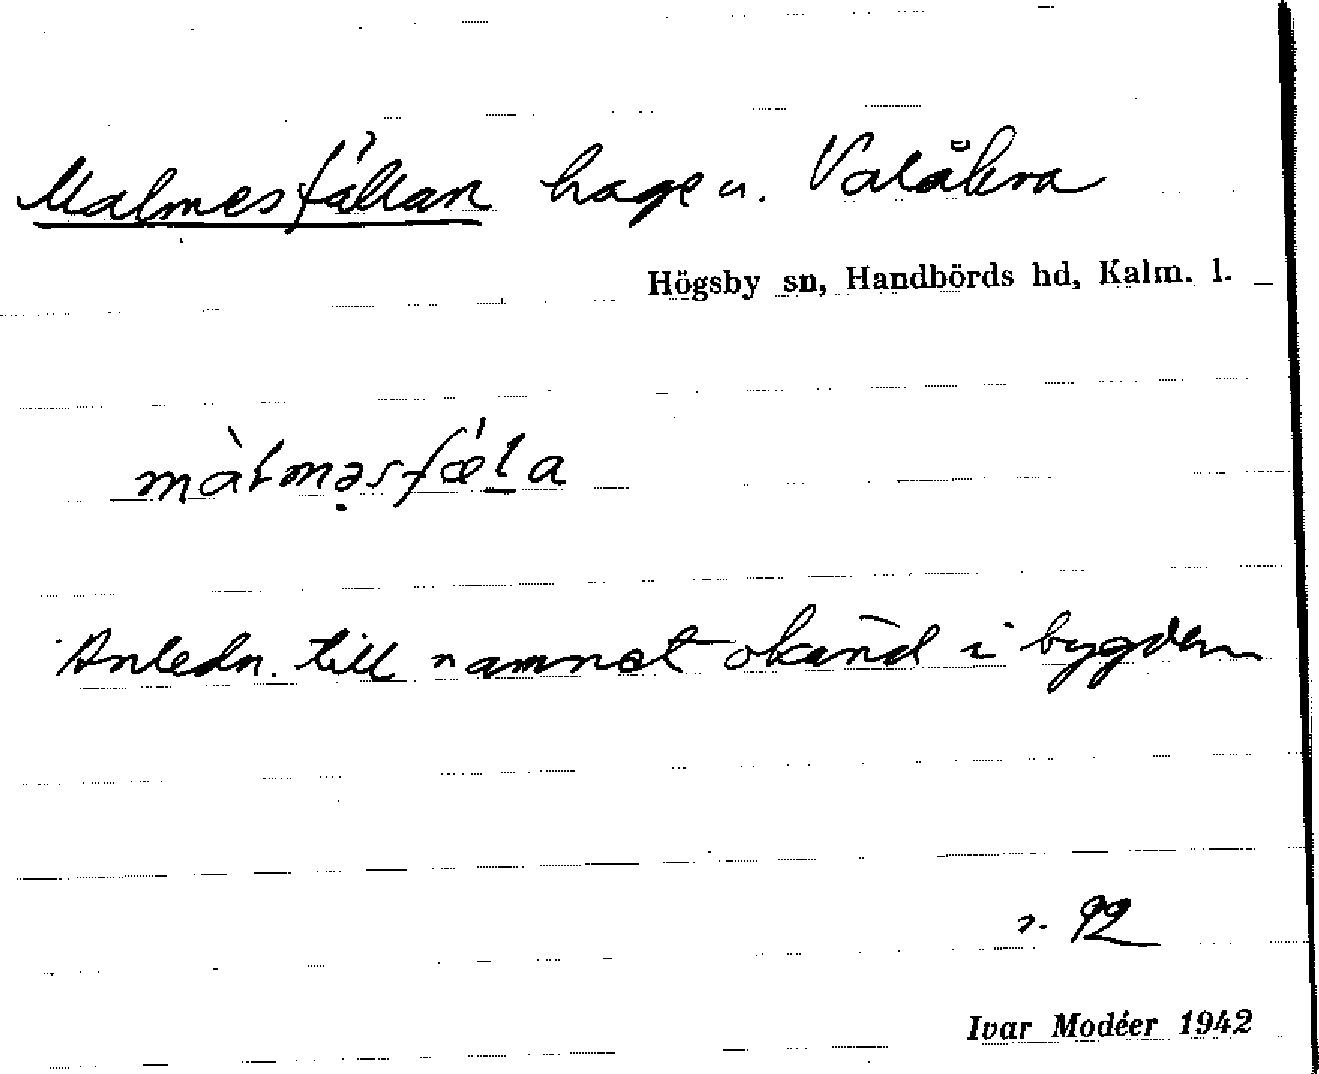 Malmesfällan hage u. Valåkra
Högsby sn, Handbörds hd, Kalm. l.
màlməsfǽla
Anledn. till namnet okänd i bygden
s. 92
Ivar Modéer 1942